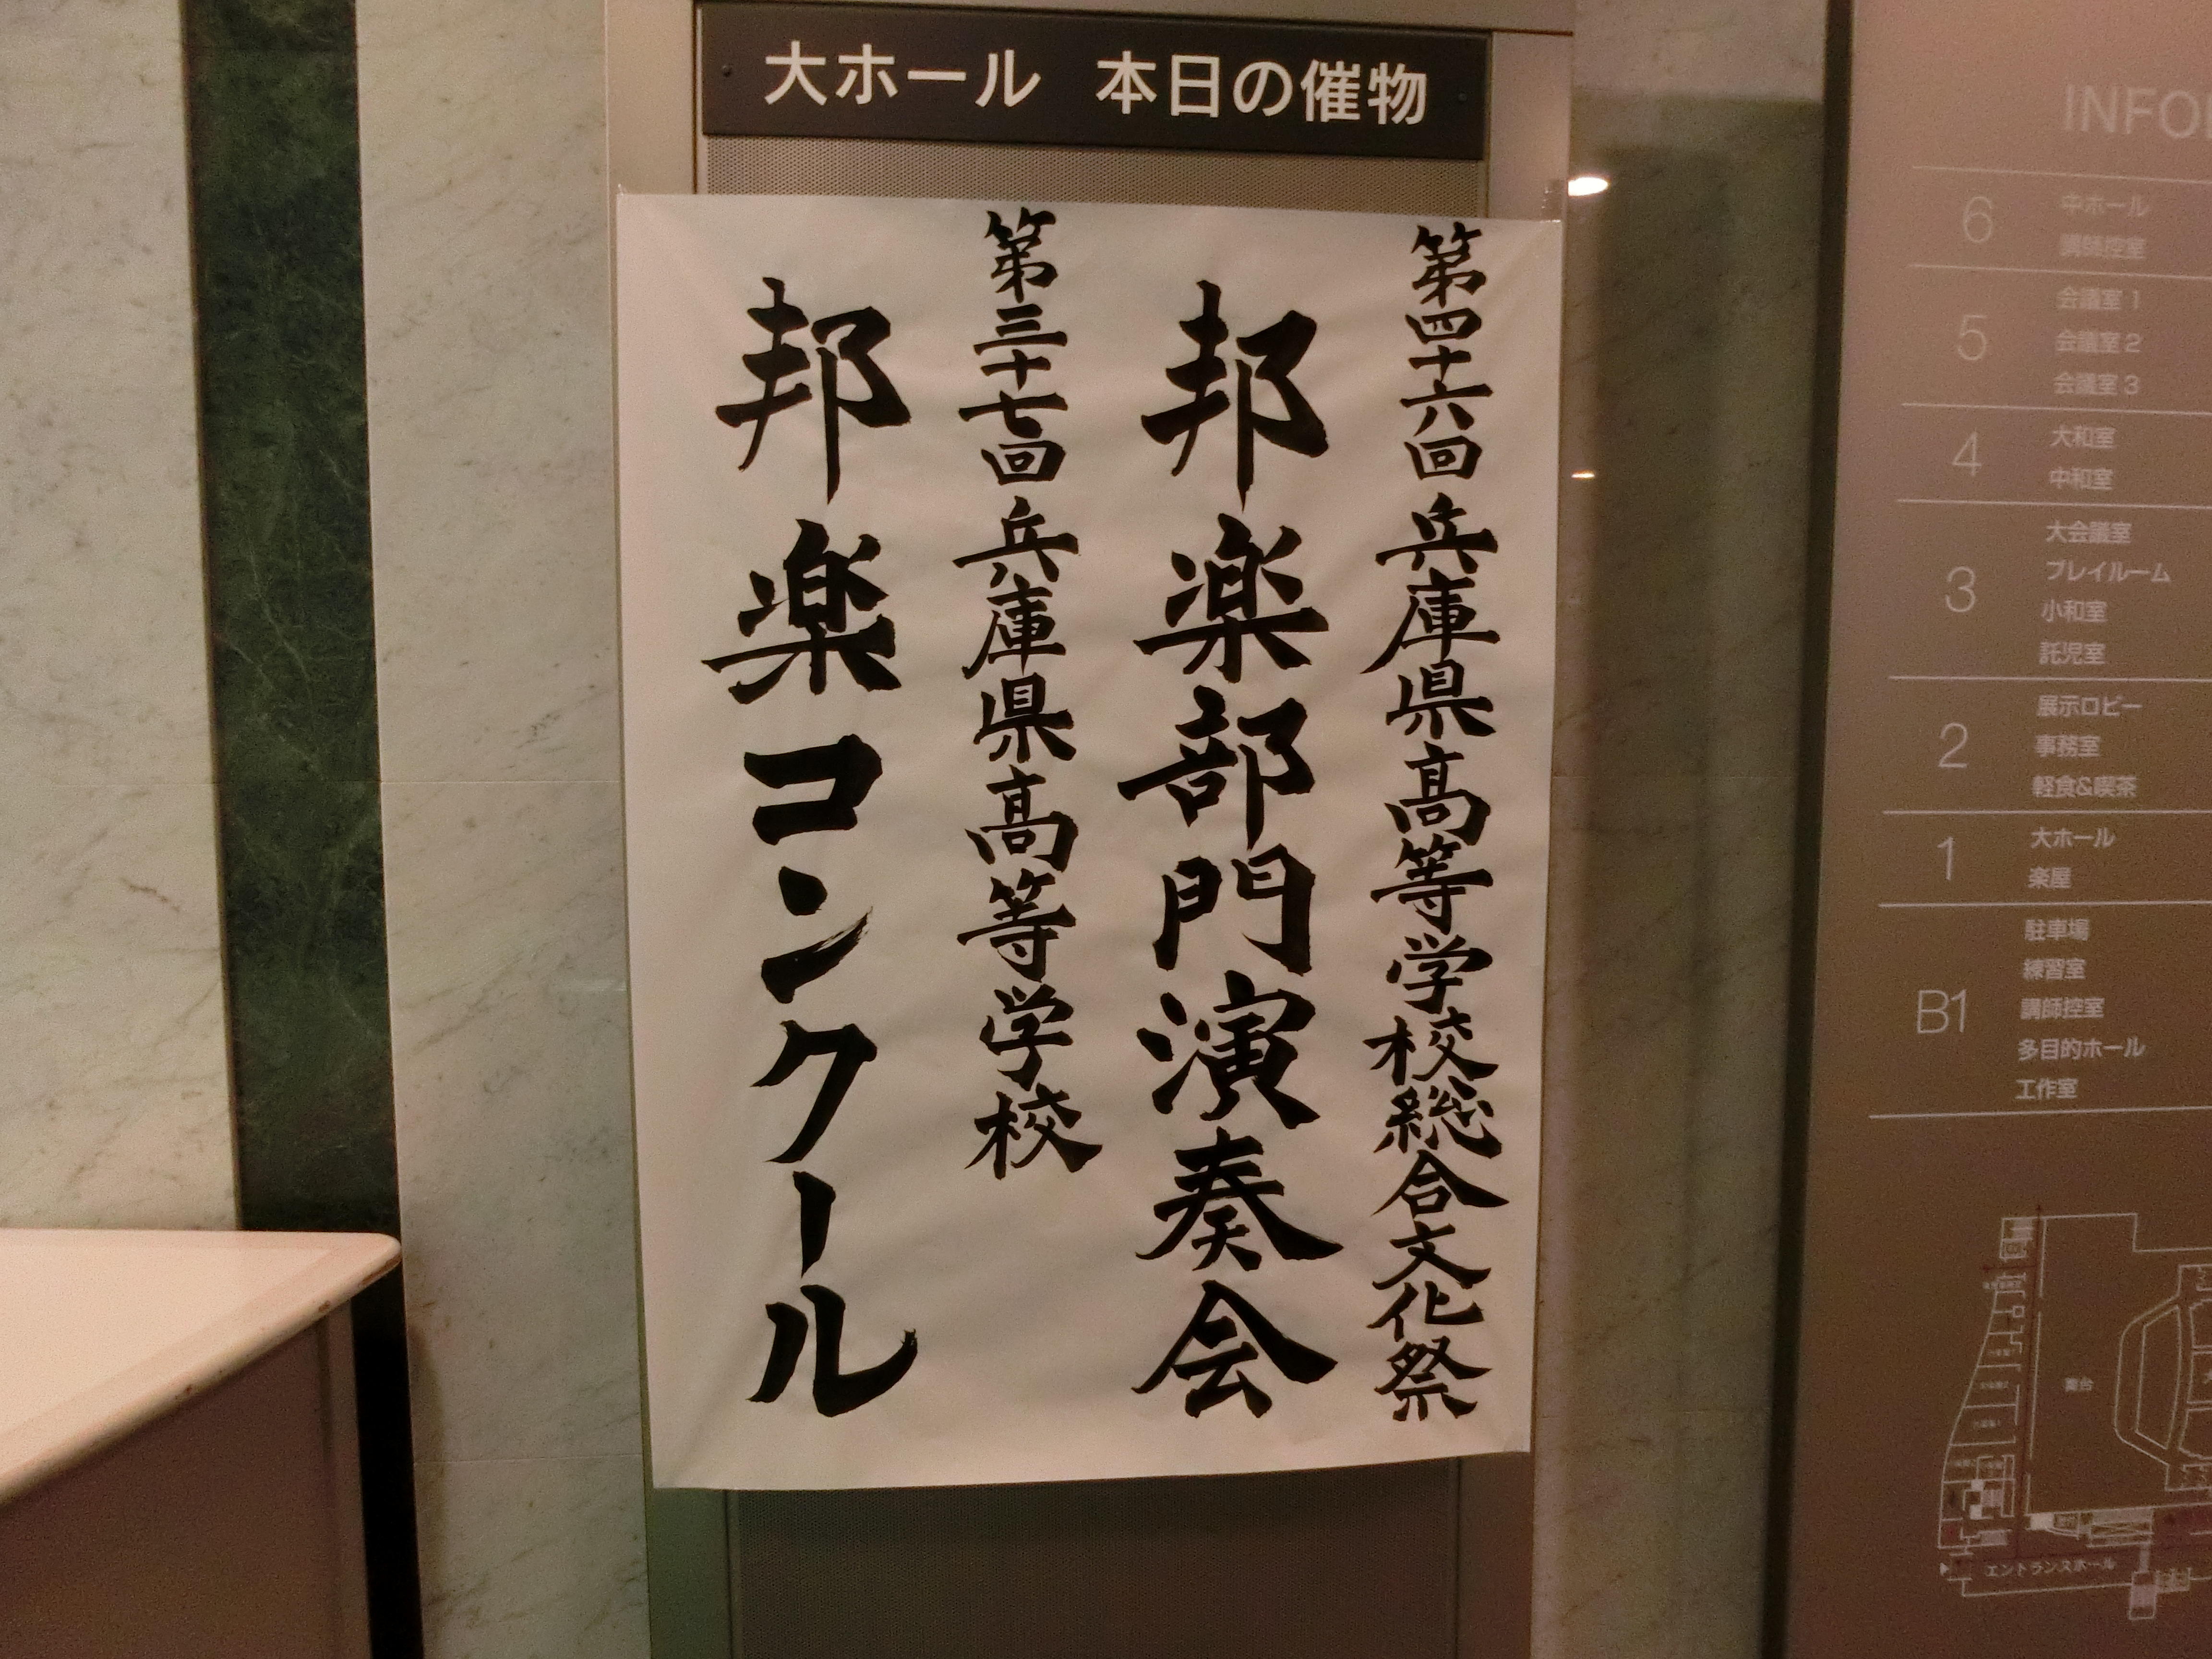 大ホール 本日の催物
第四十六回 兵庫県高等学校総合文化祭
邦楽部門演奏会
第三十七回 兵庫県高等学校
邦楽コンクール
INFO
6
中ホール
講師控室
5
会議室1
会議室2
会議室3
4
大和室
中和室
3
大会議室
プレイルーム
小和室
託児室
2
展示ロビー
事務室
軽食&喫茶
1
大ホール
楽屋
B1
駐車場
練習室
講師控室
多目的ホール
工作室
舞台
エントランスホール